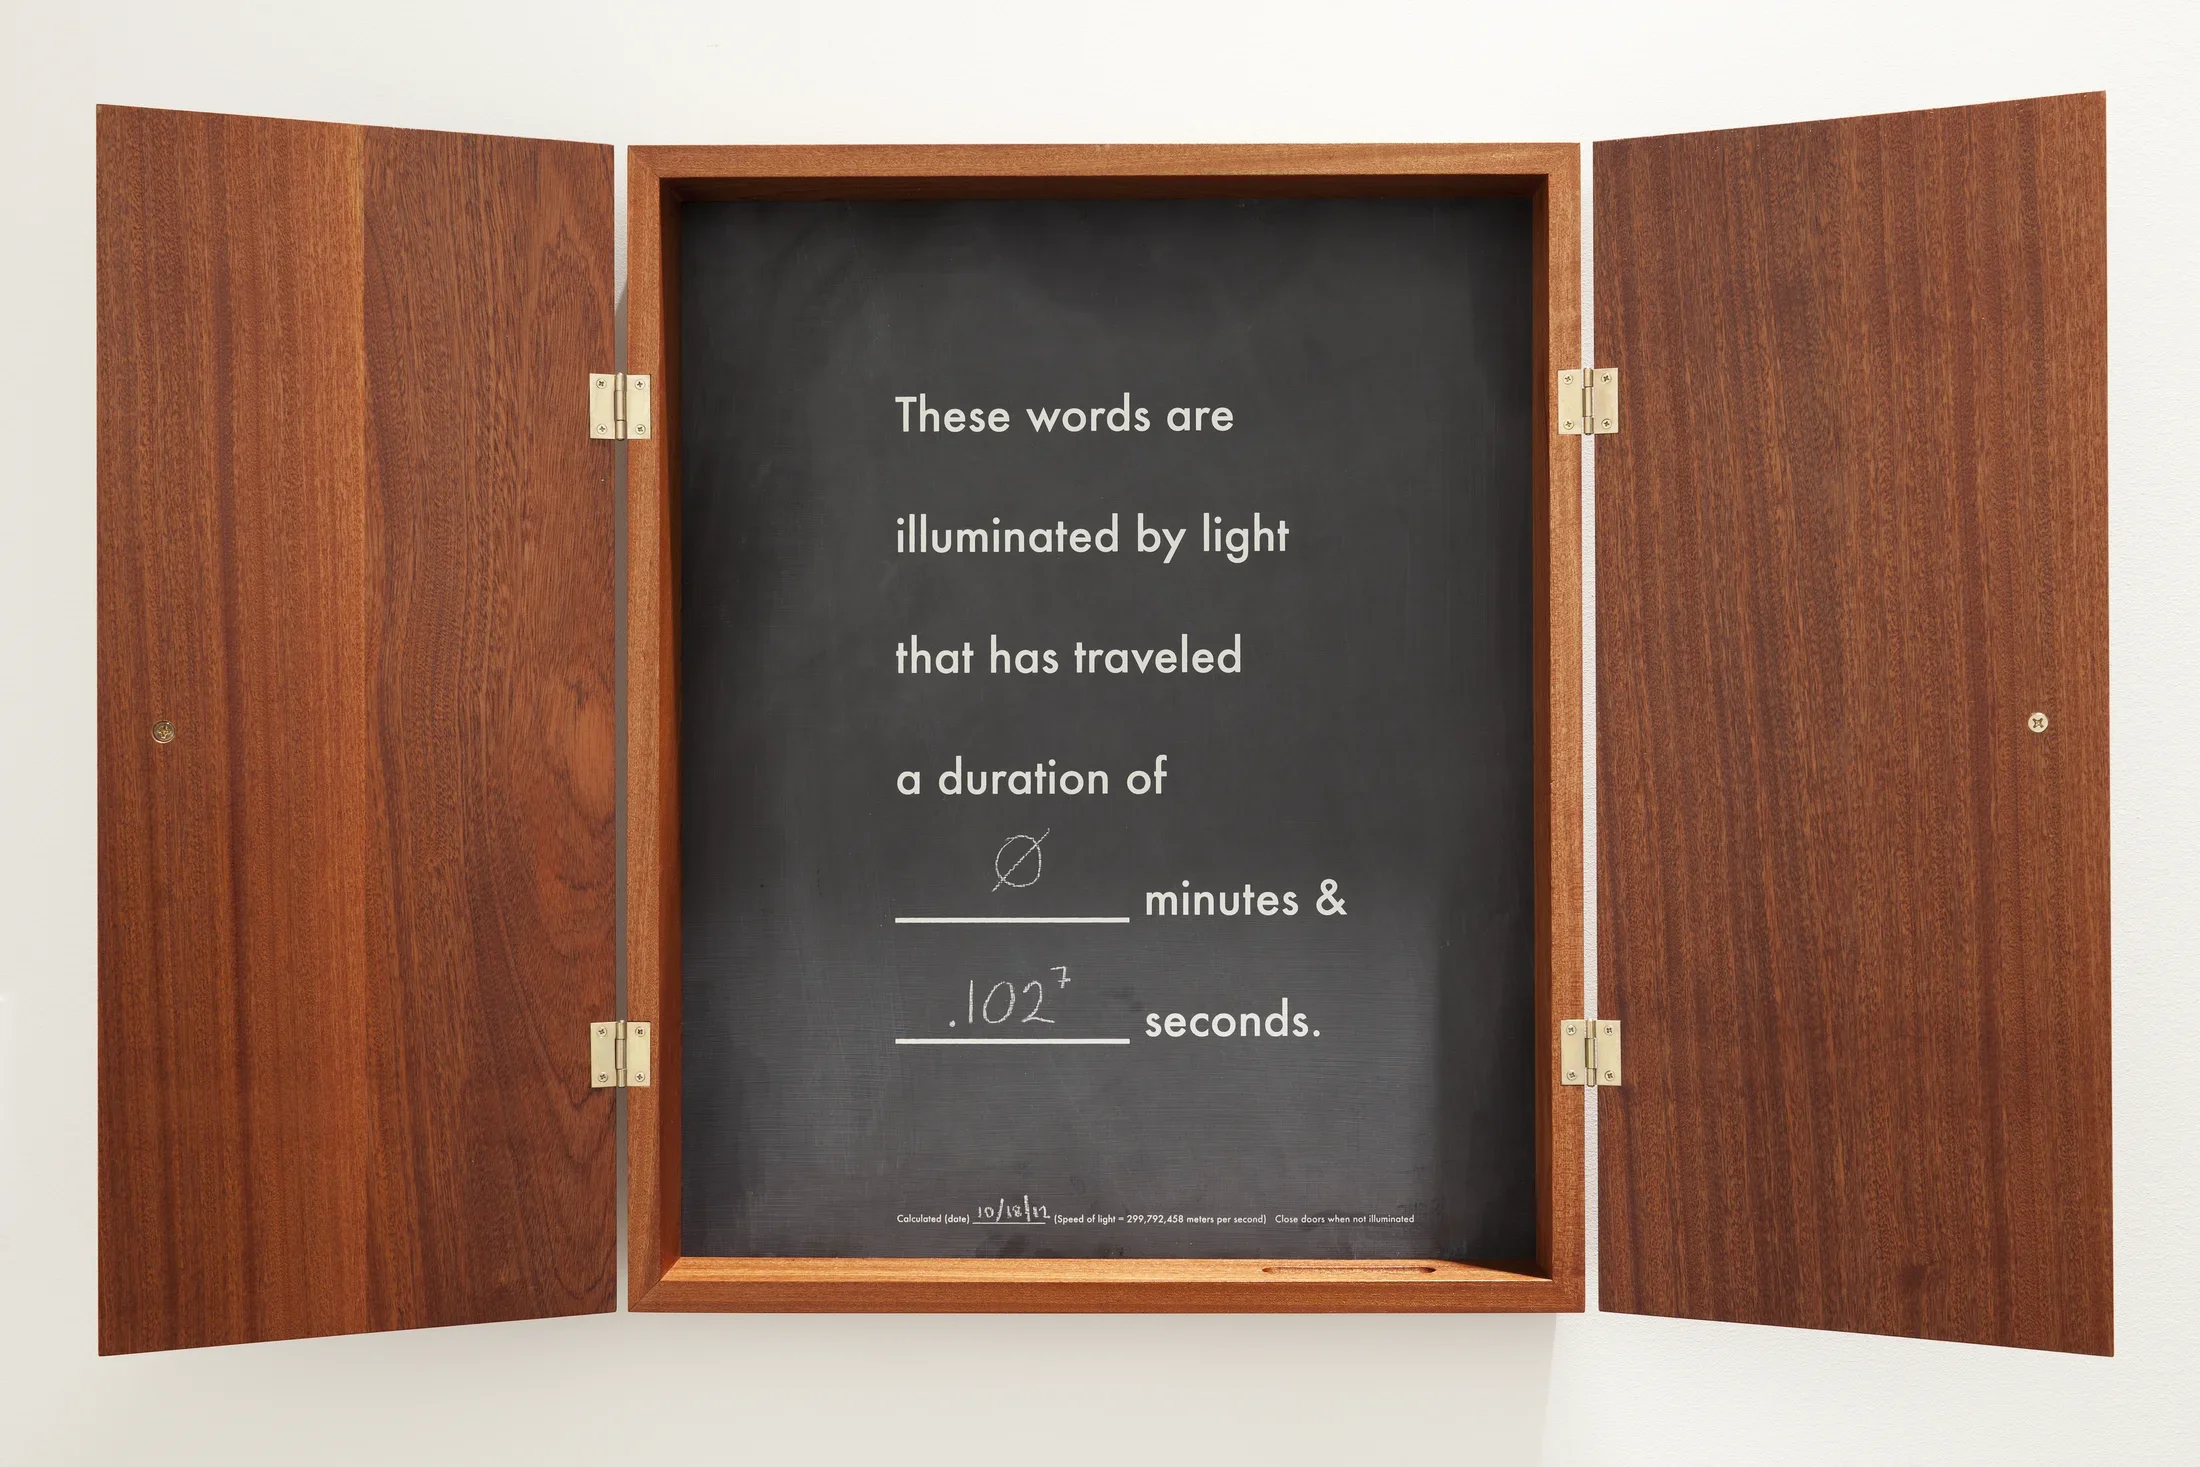 These words are
illuminated by light
that has traveled
a duration of
Ø minutes &
.102⁷ seconds.
Calculated (date) 10/18/12 (Speed of light = 299,792,458 meters per second) Close doors when not illuminated